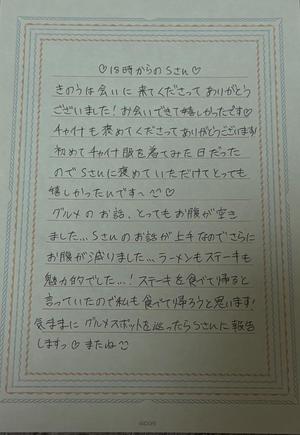 ♡18時からのSさん♡
きのうは会いに来てくださってありがとう
ございました！お会いできて嬉しかったです♡
チャイナも褒めてくださってありがとうございます！
初めてチャイナ服を着てみた日だった
のでSさんに褒めていただけてとっても
嬉しかったいです〜♡
グルメのお話、とってもお腹が空き
ました...Sさんのお話が上手なのでさらに
お腹が減りました...ラーメンもステーキも
魅力的でした...！ステーキを食べて帰ると
言っていたので私も食べて帰ろうと思います！
気ままにグルメスポットを巡ったらSさんに報告
しますっ♡またね